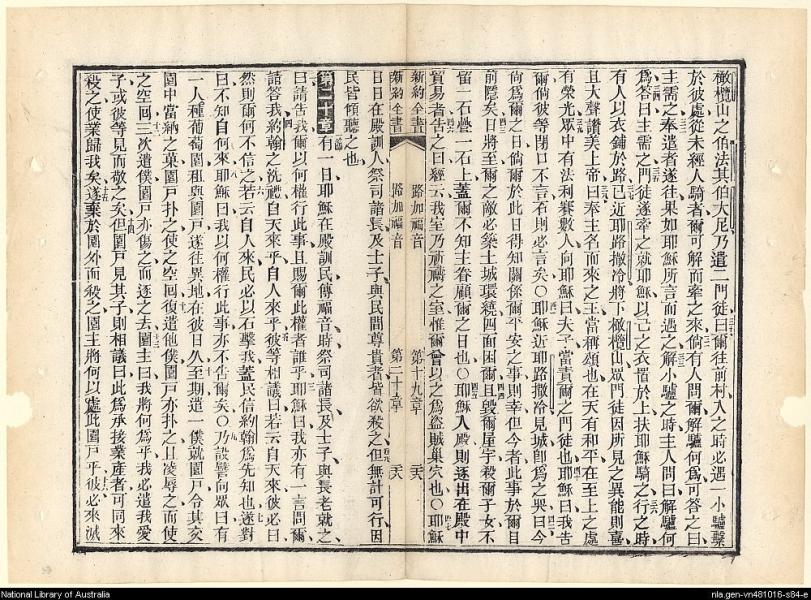 橄欖山之伯法其伯大尼乃遣二門徒曰爾往前村入之時必遇一小驢繫
於彼處從未經人騎者爾可解而牽之來倘有人問爾解驢何為可答之曰
主需之奉遣者遂往果如耶穌所言而遇之解小驢之時主人問曰解驢何
為答曰主需之門徒遂牽之就耶穌以己之衣置於上扶耶穌騎之行之時
有人以衣鋪於路已近耶路撒冷將下橄欖山眾門徒因所見之異能則喜
且大聲讚美上帝曰奉主名而來之王當稱頌也在天有和平在至上之處
有榮光眾中有法利賽數人向耶穌曰夫子當責爾之門徒也耶穌曰我告
爾倘彼等閉口不言石則必言矣〇耶穌近耶路撒冷見城即為之哭曰今
尚為爾之日倘爾於此日得知關係爾平安之事則幸但今者此事於爾目
前隱矣日將至爾之敵必築土城環繞四面困爾且毀爾屋宇殺爾子女不
留一石疊一石上蓋爾不知主眷顧爾之日也〇耶穌入殿則逐出在殿中
貿易者告之曰經云我室乃祈禱之室惟爾曾以之為盜賊巢穴也〇耶穌
新約全書 路加福音 第十九章 二六
新約全書 路加福音 第二十章 二六
日日在殿訓人祭司諸長及士子與民間尊貴者皆欲殺之但無計可行因
民皆傾聽之也
第二十章 有一日耶穌在殿訓民傳福音時祭司諸長及士子與長老就之
曰請告我爾以何權行此事且賜爾此權者誰乎耶穌曰我亦有一言問爾
請答我約翰之洗禮自天來乎自人來乎彼等相議曰若云自天來彼必曰
然則爾何不信之若云自人來民必以石擊我蓋民信約翰為先知也遂對
曰不知自何來耶穌曰我以何權行此事亦不告爾矣〇乃設譬向眾曰有
一人種葡萄園租與園戶遂往異地在彼日久至期遣一僕就園戶令其交
園中當納之菓園戶扑之使之空回復遣他僕園戶亦扑之且凌辱之而使
之空回三次遣僕園戶亦傷之而逐之去園主曰我將何為乎我必遣我愛
子或彼等見而敬之矣但園戶見其子則相議曰此為承接業產者可同來
殺之使業歸我矣遂棄於園外而殺之園主將何以處此園戶乎彼必來滅
National Library of Australia
nla.gen-vn481016-s84-e